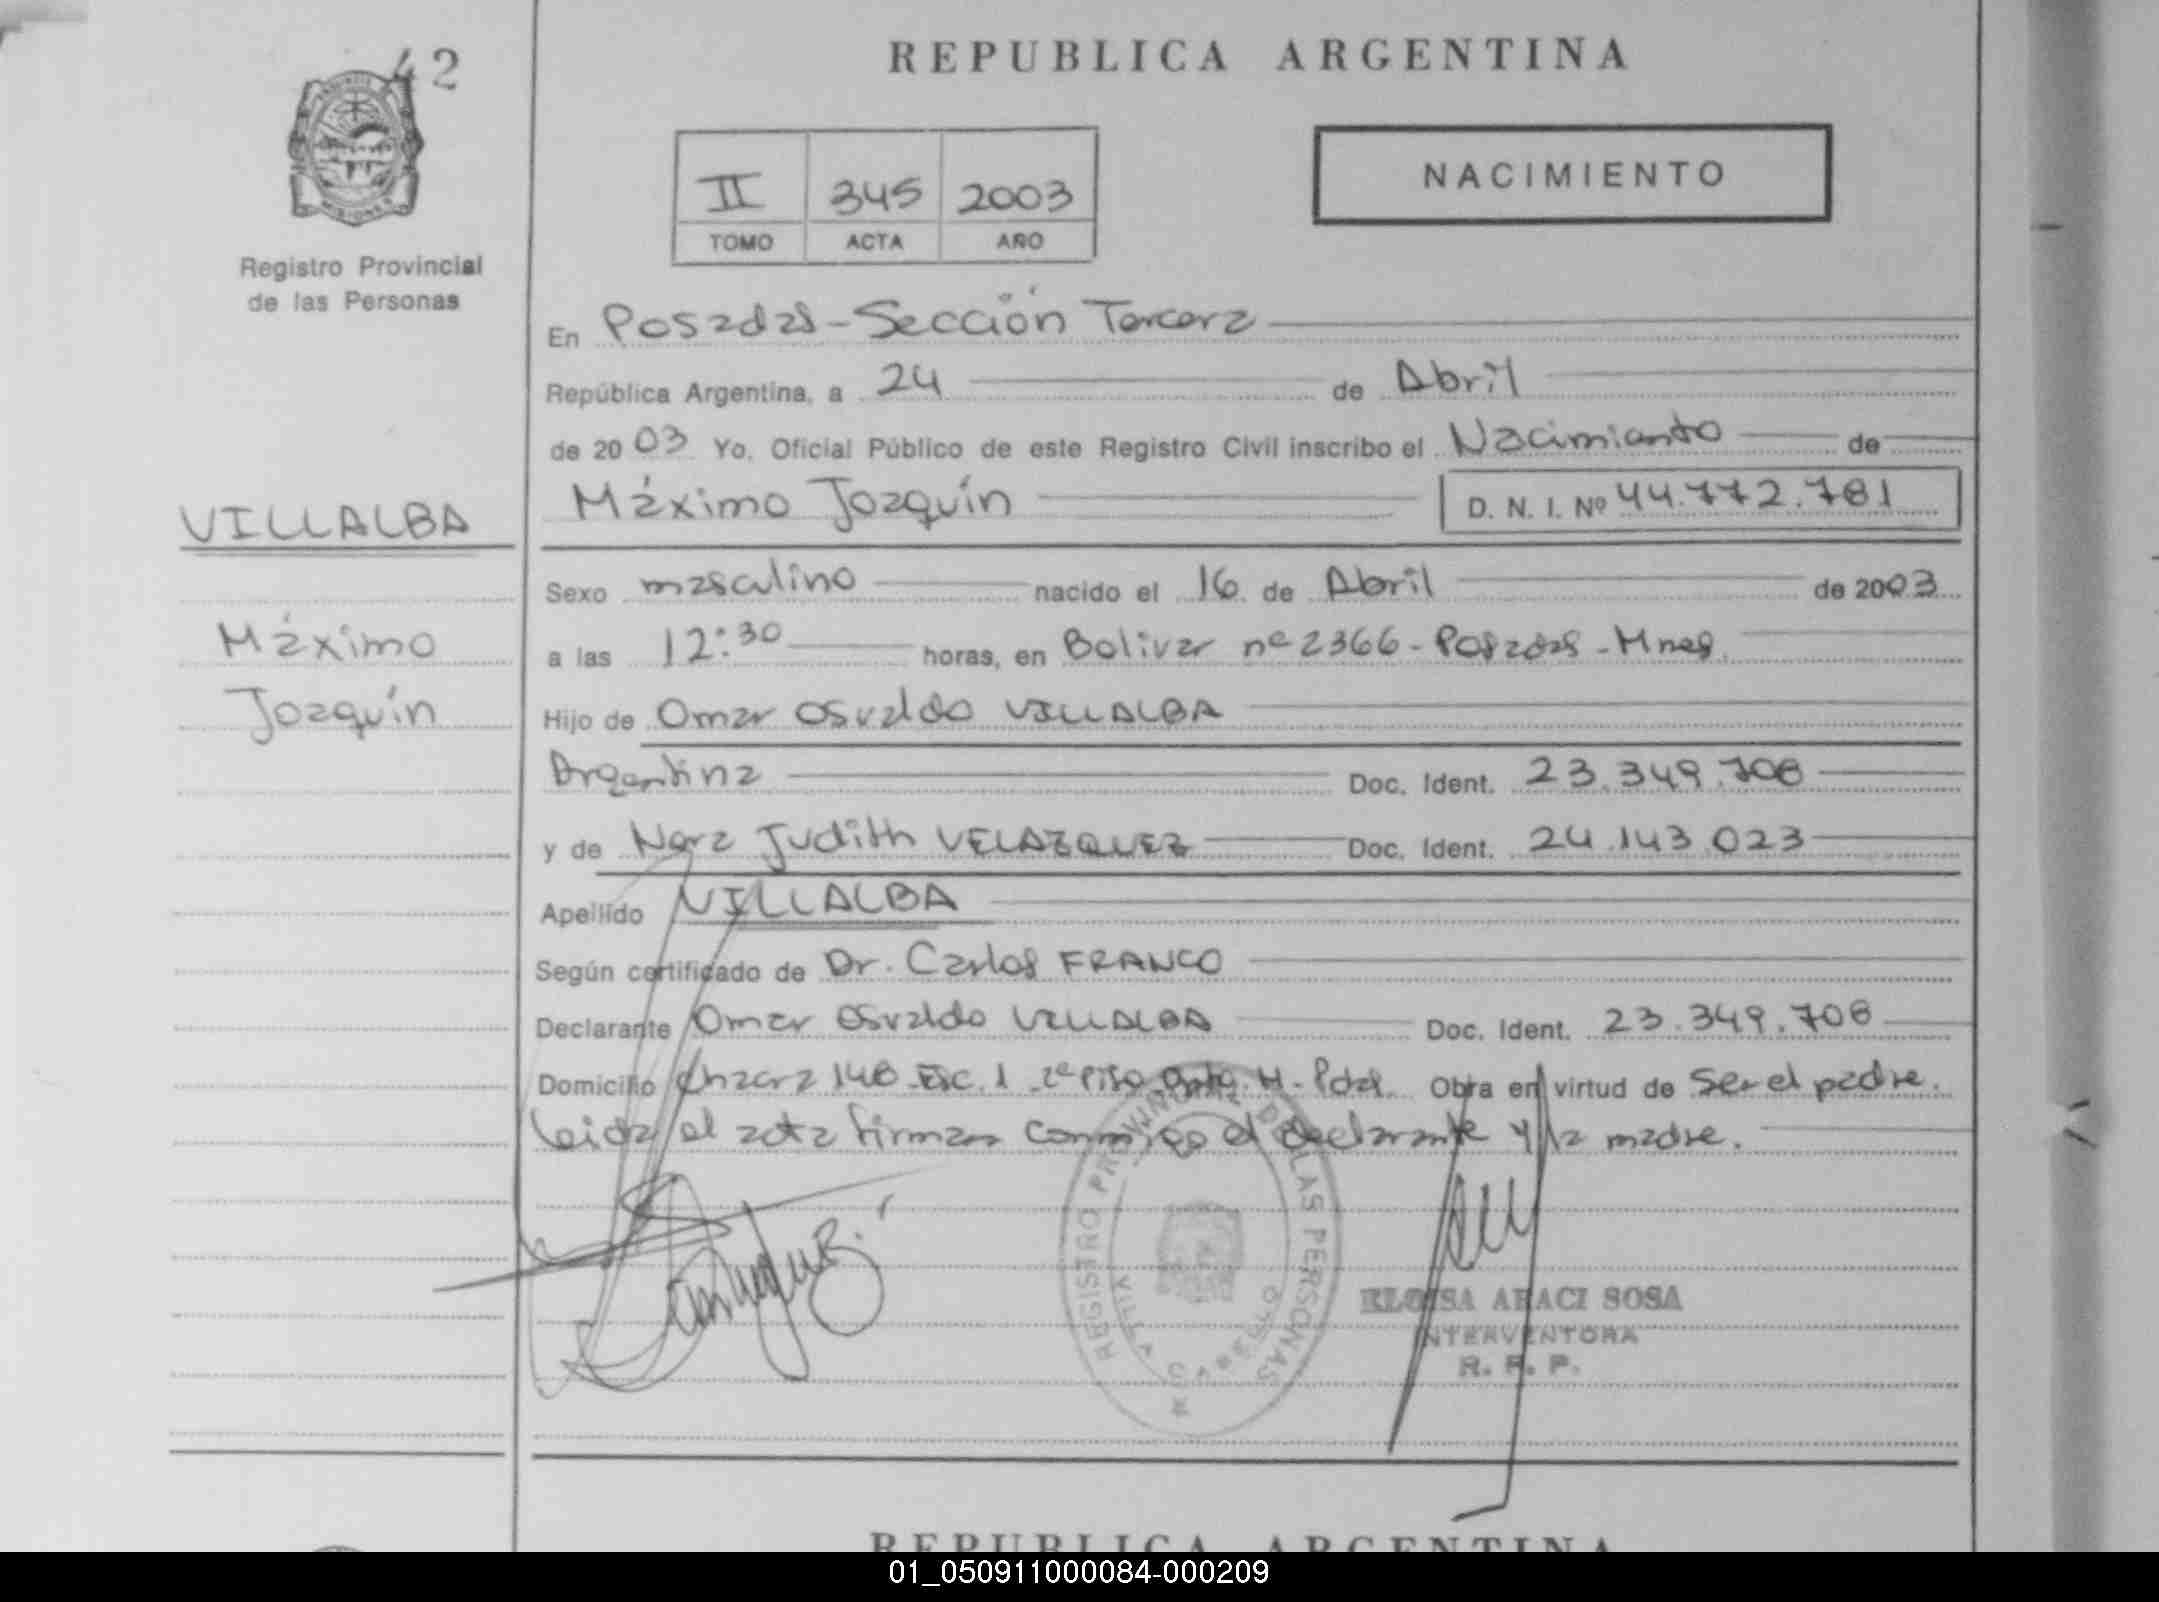 42
REPUBLICA ARGENTINA
II 345 2003
TOMO ACTA AÑO
NACIMIENTO
Registro Provincial
de las Personas
En Posadas - Sección Tercera
República Argentina, a 24 de Abril
de 2003 Yo, Oficial Público de este Registro Civil inscribo el Nacimiento de
Máximo Joaquín D. N. I. Nº 44.772.781
VILLALBA
Máximo
Joaquín
Sexo masculino nacido el 16 de Abril de 2003
a las 12:30 horas, en Bolivar nº 2366 - Posadas - Mnes.
Hijo de Omar Osvaldo VILLALBA
Argentina Doc. Ident. 23.349.708
y de Nora Judith VELAZQUEZ Doc. Ident. 24.143.023
Apellido VILLALBA
Según certificado de Dr. Carlos FRANCO
Declarante Omar Osvaldo VILLALBA Doc. Ident. 23.349.708
Domicilio Chacra 148 - Esc. 1 - 2º Piso H - Pdas. Obra en virtud de Ser el padre.
Leida el acta firman conmigo el declarante y la madre.
REGISTRO PROVINCIAL DE LAS PERSONAS
VILLA CABELLO
ELOISA ARACI SOSA
INTERVENTORA
R. P. P.
REPUBLICA ARGENTINA
01_050911000084-000209